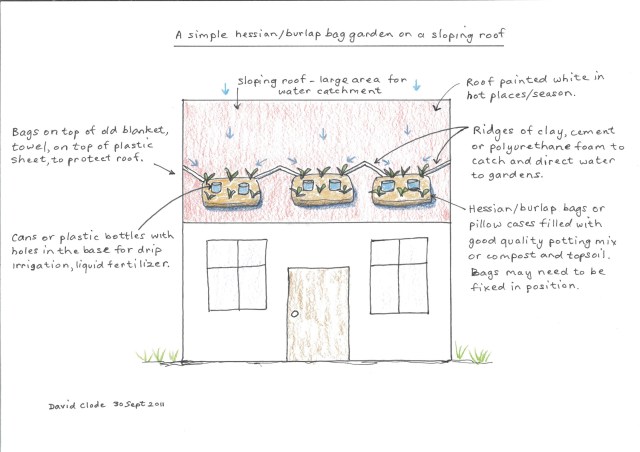 A simple hessian/burlap bag garden on a sloping roof
sloping roof - large area for
water catchment
Roof painted white in
hot places/season.
Bags on top of old blanket,
towel, on top of plastic
sheet, to protect roof.
Ridges of clay, cement
or polyurethane foam to
catch and direct water
to gardens.
Cans or plastic bottles with
holes in the base for drip
irrigation, liquid fertilizer.
Hessian/burlap bags or
pillow cases filled with
good quality potting mix
or compost and topsoil.
Bags may need to be
fixed in position.
David Clode 30 Sept 2011